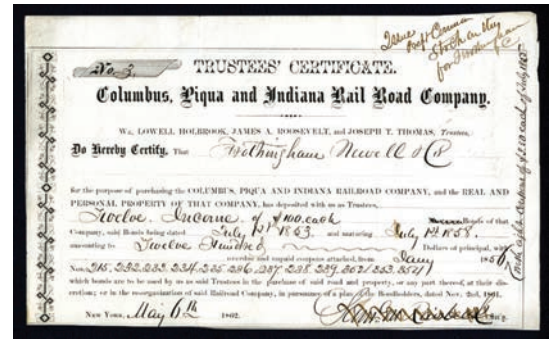 Issue
Stock on they
for Frothingham
No. 3.
TRUSTEES' CERTIFICATE.
Columbus, Piqua and Indiana Rail Road Company.
We, LOWELL HOLBROOK, JAMES A. ROOSEVELT, and JOSEPH T. THOMAS, Trustees,
Do Hereby Certify, That Frothingham Newell & Co
for the purpose of purchasing the COLUMBUS, PIQUA AND INDIANA RAILROAD COMPANY, and the REAL AND
PERSONAL PROPERTY OF THAT COMPANY, has deposited with us as Trustees,
Twelve Income of $100. each Bonds of that
Company, said Bonds being dated July 1st 1853 and maturing July 1st 1858.
amounting to Twelve Hundred Dollars of principal, with
overdue and unpaid coupons attached, from Jany 1856
Nos. 215. 232. 233. 234. 235. 236. 237. 238. 239. 352. 353. 354
which bonds are to be used by us as said Trustees in the purchase of said road and property, or any part thereof, at their dis-
cretion; or in the reorganization of said Railroad Company, in pursuance of a plan of the Bondholders, dated Nov. 2nd, 1861.
NEW YORK, May 6th 1862.
Sec'y.